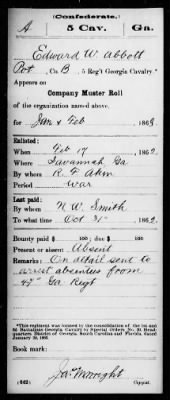 (Confederate.)
A 5 Cav. Ga.
Edward W. Abbott
Pvt, Co. B, 5 Reg't Georgia Cavalry.*
Appears on
Company Muster Roll
of the organization named above,
for Jan & Feb, 1863.
Enlisted:
When Feb 17, 1862.
Where Savannah Ga
By whom R. F. Akin
Period war
Last paid:
By whom N. W. Smith
To what time Oct 31st, 1862.
Bounty paid $ 100; due $ 100
Present or absent Absent
Remarks: On detail sent to
arrest absentees from
47" Ga Regt
*This regiment was formed by the consolidation of the 1st and
2d Battalions Georgia Cavalry by Special Orders No. 20 Head-
quarters District of Georgia, South Carolina and Florida, dated
January 20, 1863.
Book mark:
(642) Copyist.